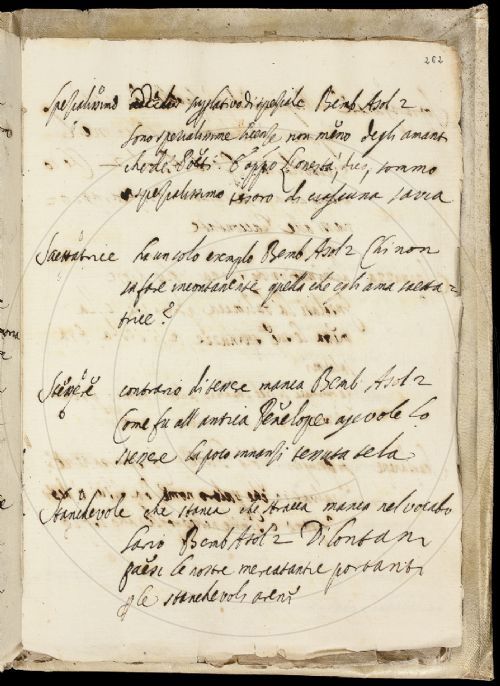 202
spezialissimo superlativo di speziale Bemb Asol 2
sono spezialissime licenze non meno degli amanti
che de Poeti. l'onestà, dico, sommo
e spezialissimo tesoro di ciascuna savia
Saettatrice ha un solo exemplo Bemb Asol 2 Chi non
sa fare incontanente quella che egli ama saetta-
trice?
Stessere contrario di tessere manca Bemb Asol 2
Come fu all'antica Penelope agevole lo
stessere la poco innanzi tessuta tela.
Stanchevole che stanca che stracca manca nel vocabo
lario Bemb Asol 2 Di lontani
paesi le nostre mercatantie portanti
p le stanchevoli arene